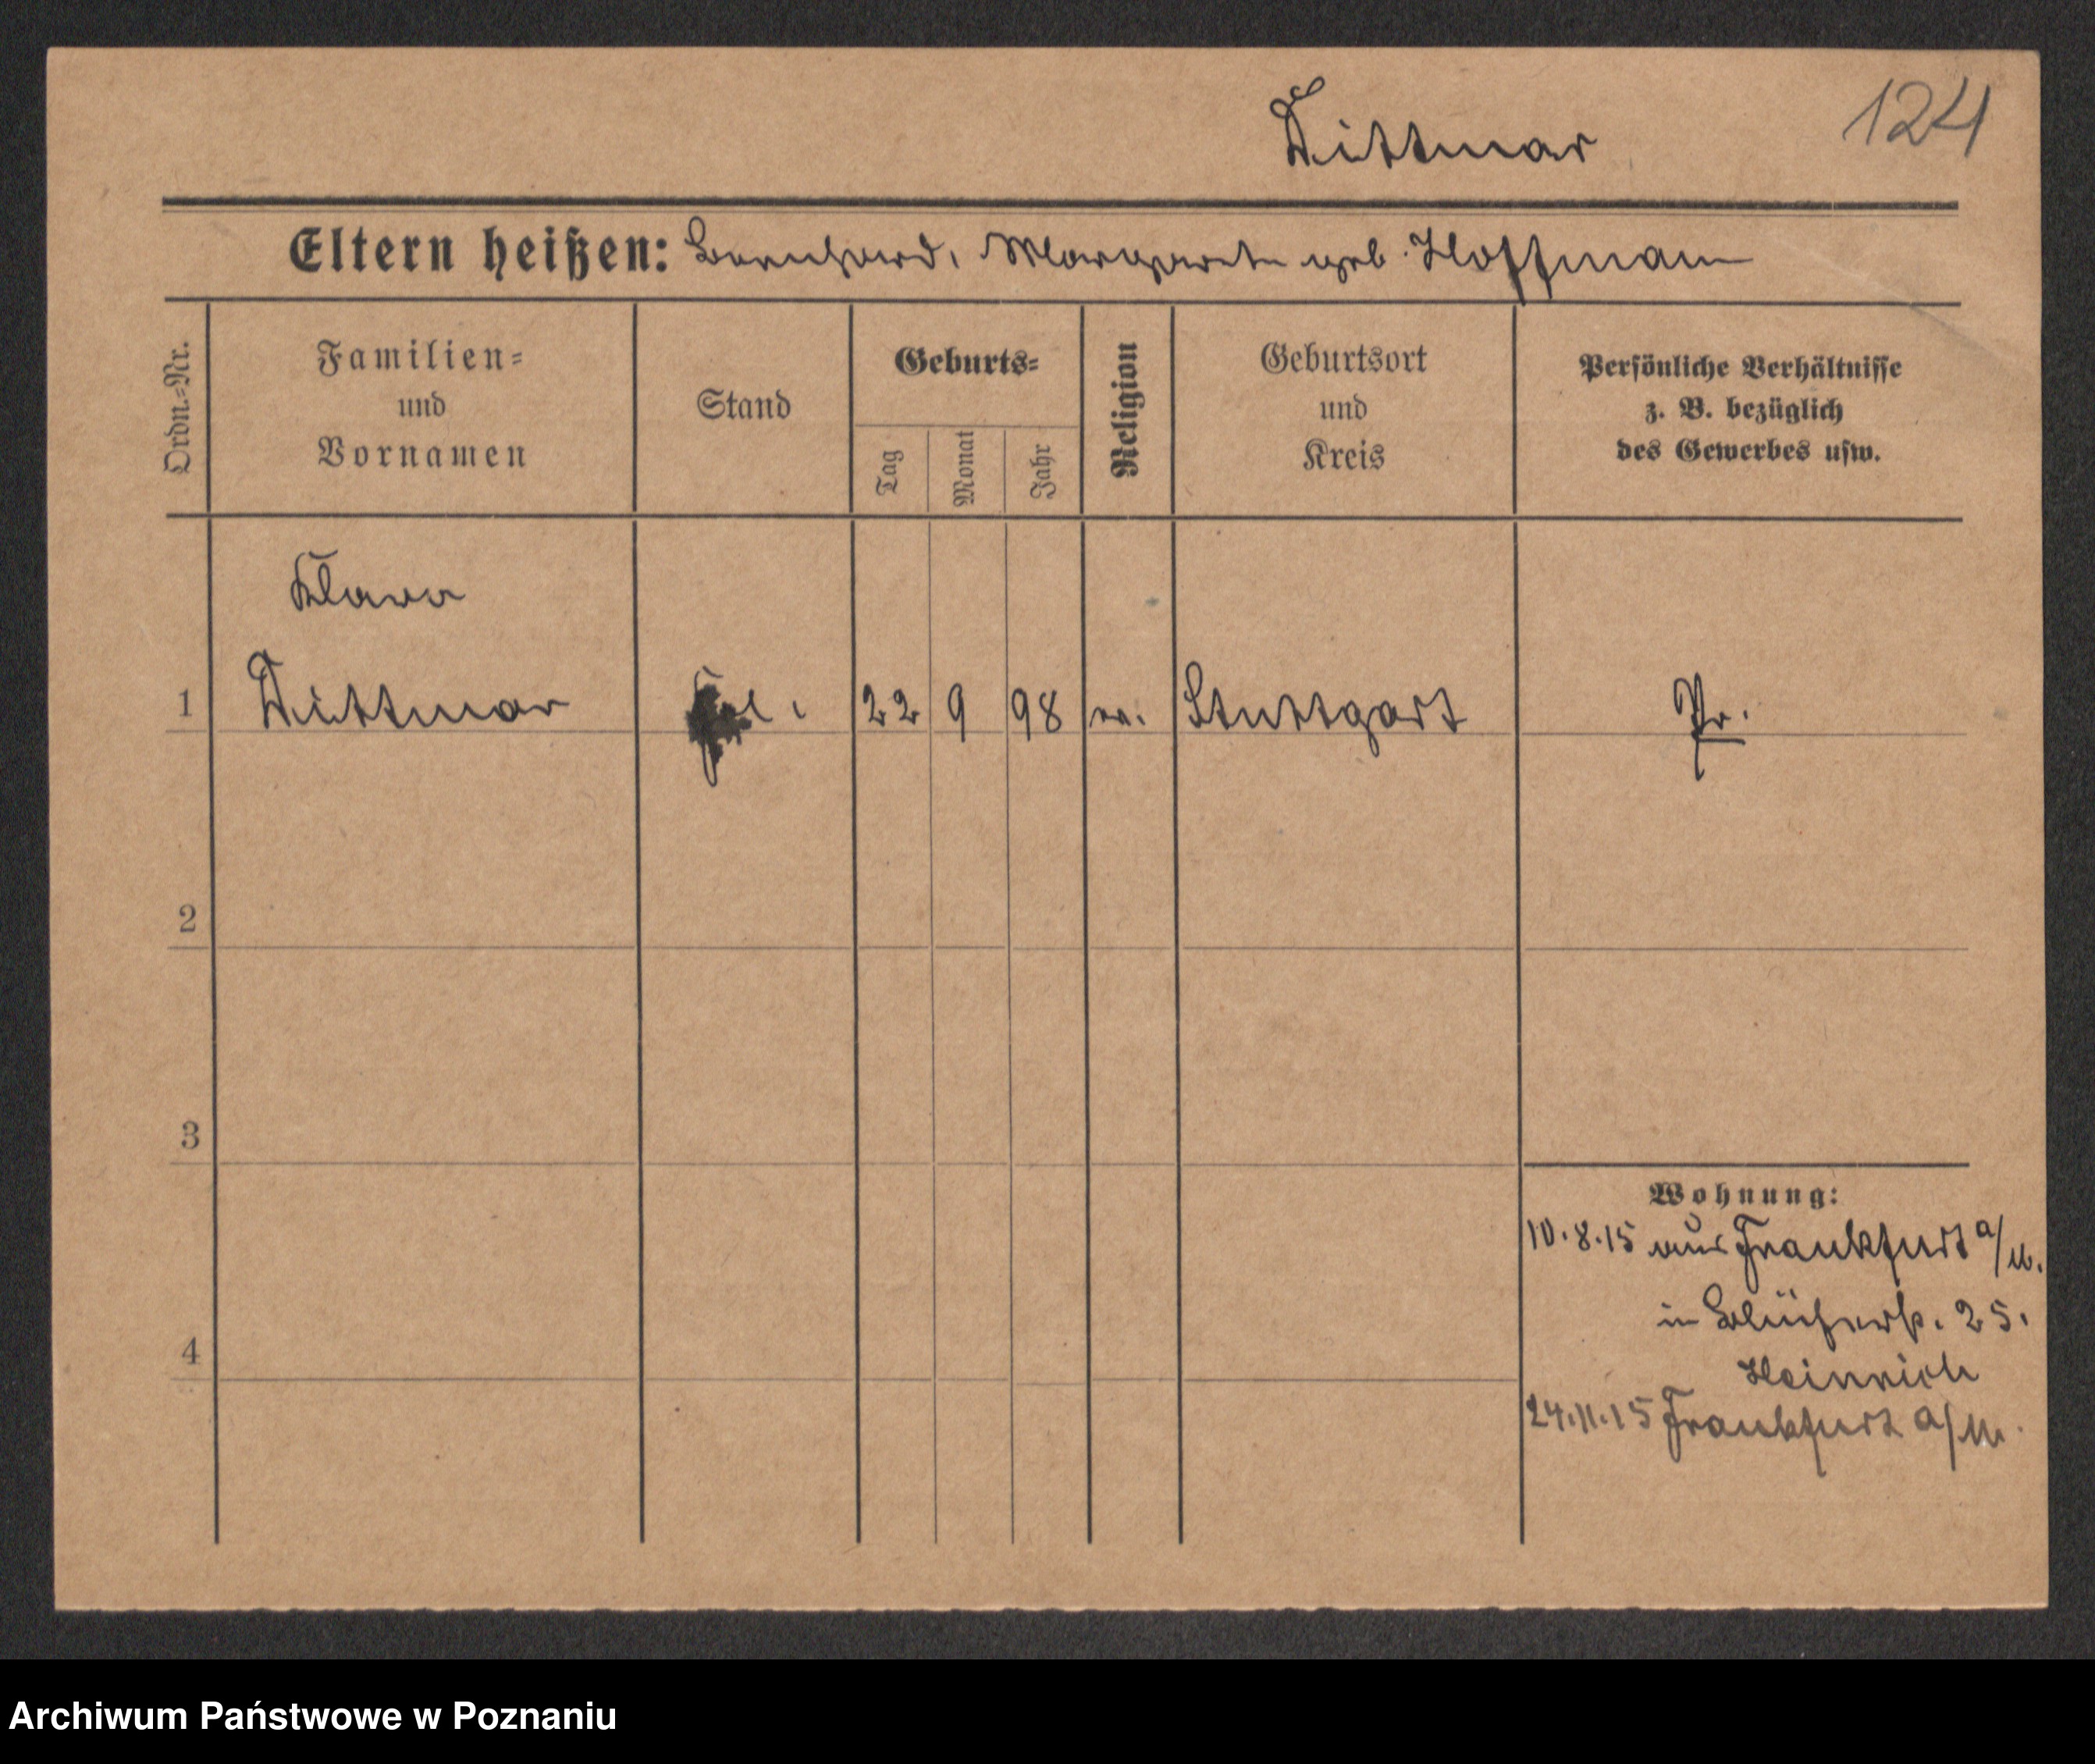 Dittmar
124
Eltern heißen: Bernhard, Margarete geb. Hoffmann
Ordn.-Nr.
Familien-
und
Vornamen
Stand
Geburts-
Tag
Monat
Jahr
Religion
Geburtsort
und
Kreis
Persönliche Verhältnisse
z. B. bezüglich
des Gewerbes usw.
Klara
1 Dittmar 22 9 98 ev. Stuttgart Pr.
2
3
4
Wohnung:
10.8.15 aus Frankfurt a/M.
in Blücherstr. 25.
Heinrich
24.11.15 Frankfurt a/M.
Archiwum Państwowe w Poznaniu